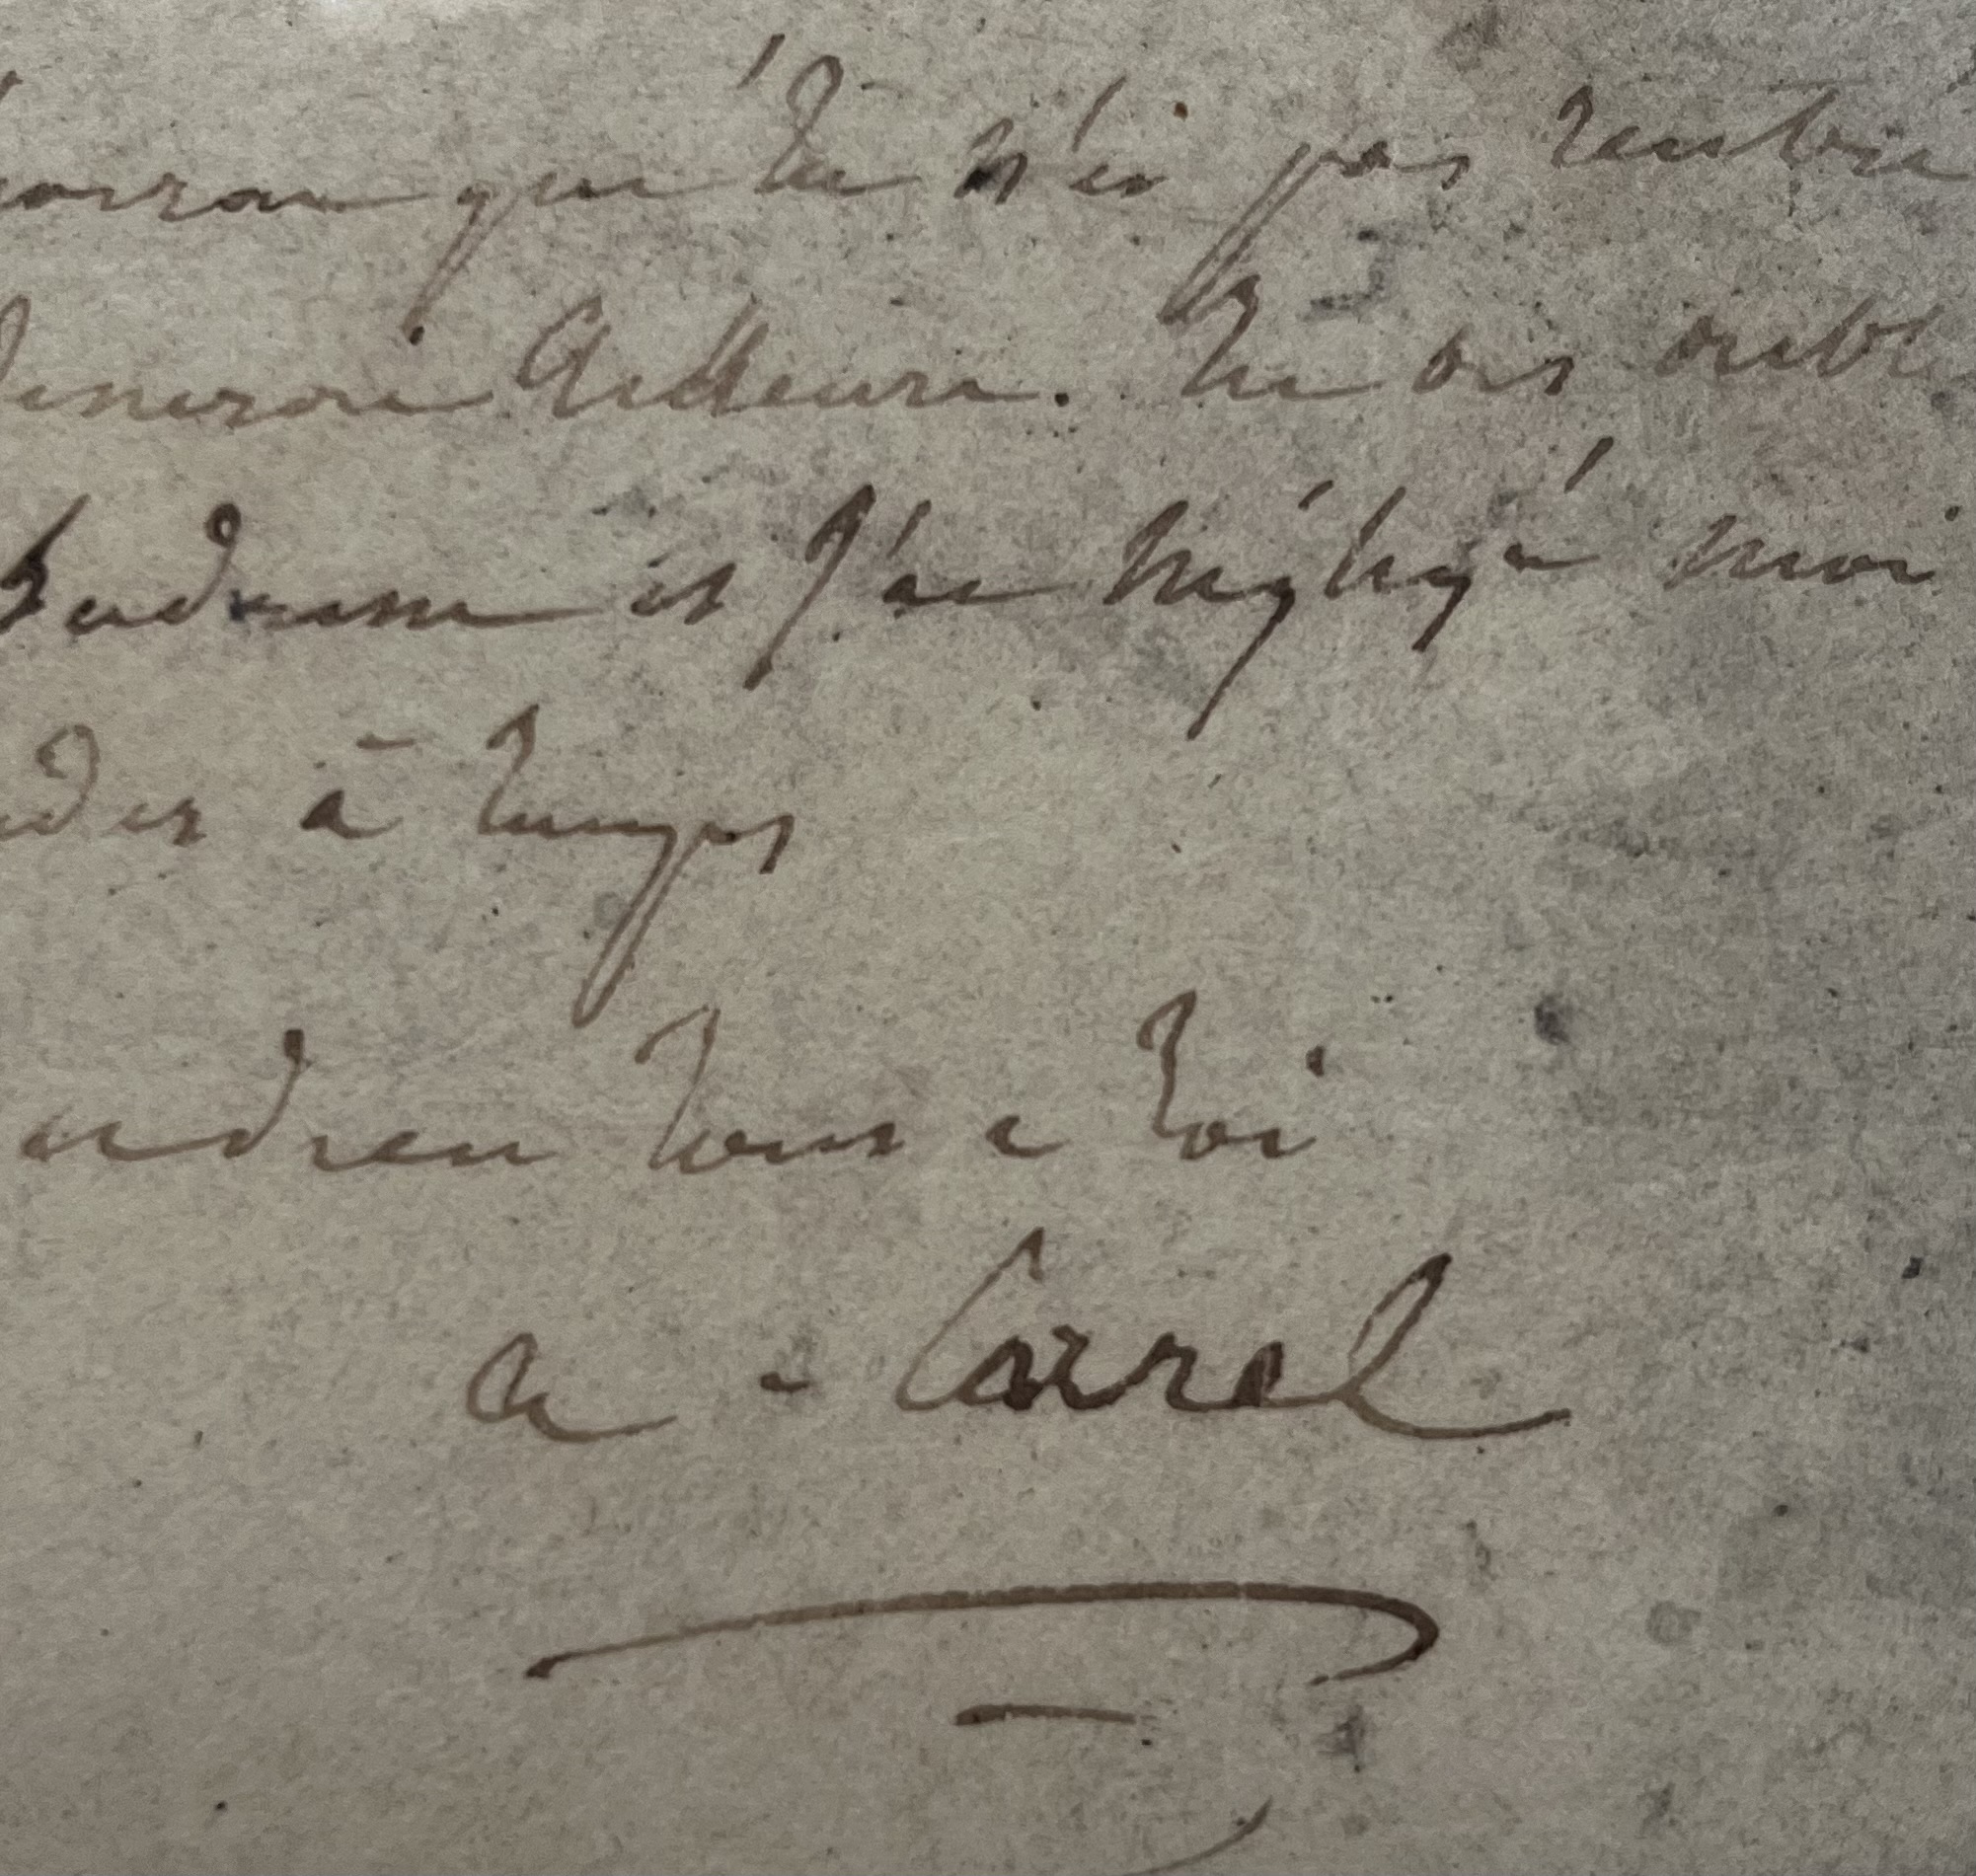 que tu n'es pas rentré
ailleurs. Tu as oubl
et j'ai négligé moi
à temps
adieu tout à toi
a - Carrel